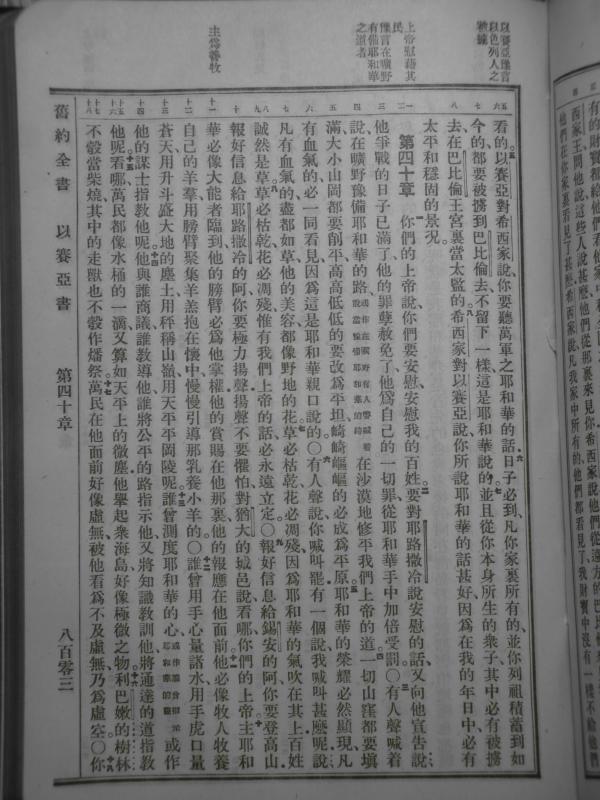 西家王問他說這些人說甚麽他們從那裏來見你希西家說他們從遠方的巴比倫
他們在你家裏看見了甚麽希西家說凡我家中所有的他們都看見了我財寶中沒有一樣不給他們
以賽亞豫言
以色列人之
被擄
上帝慰藉其
民
豫言在曠野
有備耶和華
之道者
主爲善牧
看的以賽亞對希西家說你要聽萬軍之耶和華的話日子必到凡你家裏所有的並你列祖積蓄到如
今的都要被擄到巴比倫去不留下一樣這是耶和華說的並且從你本身所生的衆子其中必有被擄
去在巴比倫王宮裏當太監的希西家對以賽亞說你所說耶和華的話甚好因爲在我的年日中必有
太平和穩固的景況
第四十章 你們的上帝說你們要安慰安慰我的百姓要對耶路撒冷說安慰的話又向他宣告說
他爭戰的日子已滿了他的罪孽赦免了他爲自己的一切罪從耶和華手中加倍受罰〇有人聲喊着
說在曠野豫備耶和華的路或作在曠野有人聲喊着說當豫備耶和華的路在沙漠地修平我們上帝的道一切山窪都要塡
滿大小山岡都要削平高高低低的要改爲平坦崎崎嶇嶇的必成爲平原耶和華的榮耀必然顯現凡
有血氣的必一同看見因爲這是耶和華親口說的〇有人聲說你喊叫罷有一個說我喊叫甚麽呢說
凡有血氣的盡都如草他的美容都像野地的花草必枯乾花必凋殘因爲耶和華的氣吹在其上百姓
誠然是草草必枯乾花必凋殘惟有我們上帝的話必永遠立定〇報好信息給錫安的阿你要登高山
報好信息給耶路撒冷的阿你要極力揚聲揚聲不要懼怕對猶大的城邑說看哪你們的上帝主耶和
華必像大能者臨到他的膀臂必爲他掌權他的賞賜在他那裏他的報應在他面前他必像牧人牧養
自己的羊羣用膀臂聚集羊羔抱在懷中慢慢引導那乳養小羊的〇誰曾用手心量諸水用手虎口量
蒼天用升斗盛大地的塵土用秤稱山嶺用天平平岡陵呢誰曾測度耶和華的心或作
他的謀士指敎他呢他與誰商議誰敎導他誰將公平的路指示他又將知識敎訓他將通達的道指敎
他呢看哪萬民都像水桶的一滴又算如天平上的微塵他舉起衆海島好像極微之物利巴嫩的樹林
不彀當柴燒其中的走獸也不彀作燔祭萬民在他面前好像虛無被他看爲不及虛無乃爲虛空〇你
舊約全書 以賽亞書 第四十章 八百零三